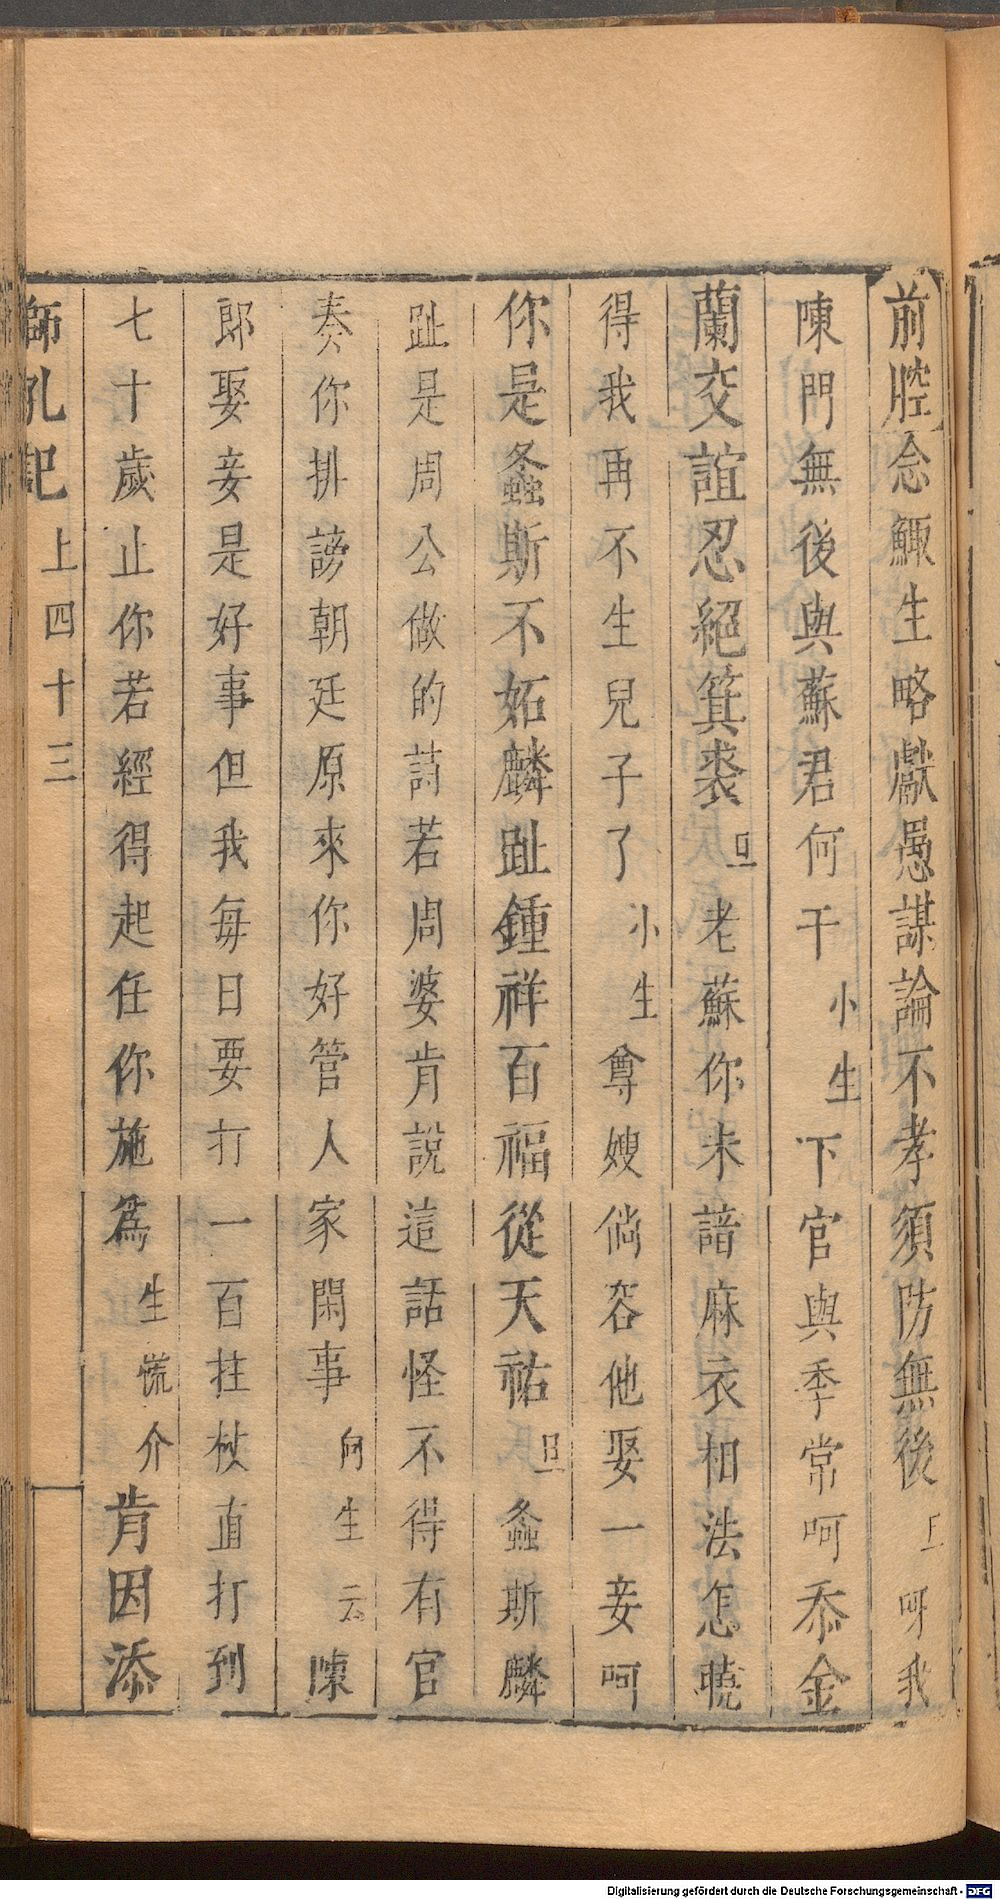 前腔念鯫生略獻愚謀論不孝須防無後旦呀我
陳門無後與蘇君何干小生下官與季常呵忝金
蘭交誼忍絕箕裘旦老蘇你未諳麻衣相法怎曉
得我再不生兒子了小生尊嫂倘容他娶一妾呵
你是螽斯不妬麟趾鍾祥百福從天祐旦螽斯麟
趾是周公做的詩若周婆肯說這話怪不得有官
奏你排謗朝廷原來你好管人家閑事向生云陳
郎娶妾是好事但我每日要打一百拄杖直打到
七十歲止你若經得起任你施爲生慌介肯因添
獅吼記
上四十三
Digitalisierung gefördert durch die Deutsche Forschungsgemeinschaft - DFG